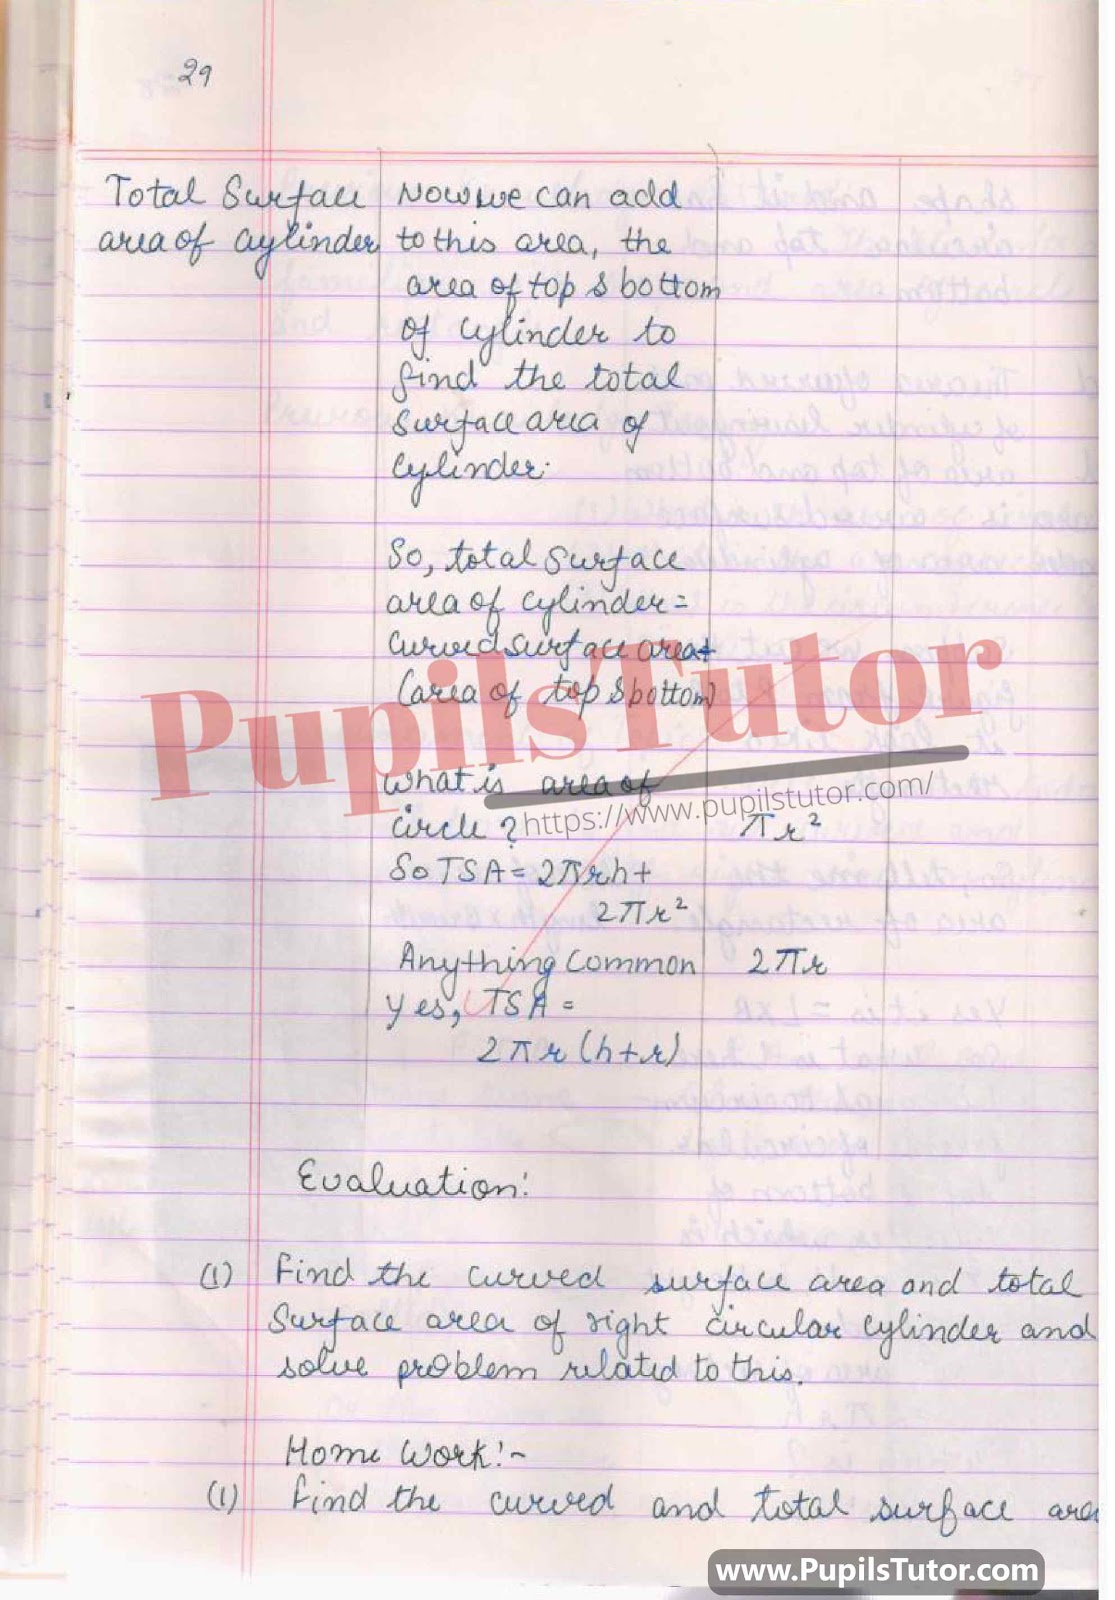 29
Total Surface
area of cylinder
Now we can add
to this area, the
area of top & bottom
of cylinder to
find the total
surface area of
cylinder.
So, total surface
area of cylinder =
curved surface area +
(area of top & bottom)
What is area of
circle?
πr²
So TSA = 2πrh +
2πr²
Anything common
2πr
Yes, TSA =
2πr (h+r)
Evaluation:
(1) Find the curved surface area and total
Surface area of right circular cylinder and
solve problem related to this.
Home Work:-
(1) Find the curved and total surface area
PupilsTutor
https://www.pupilstutor.com/
www.PupilsTutor.com